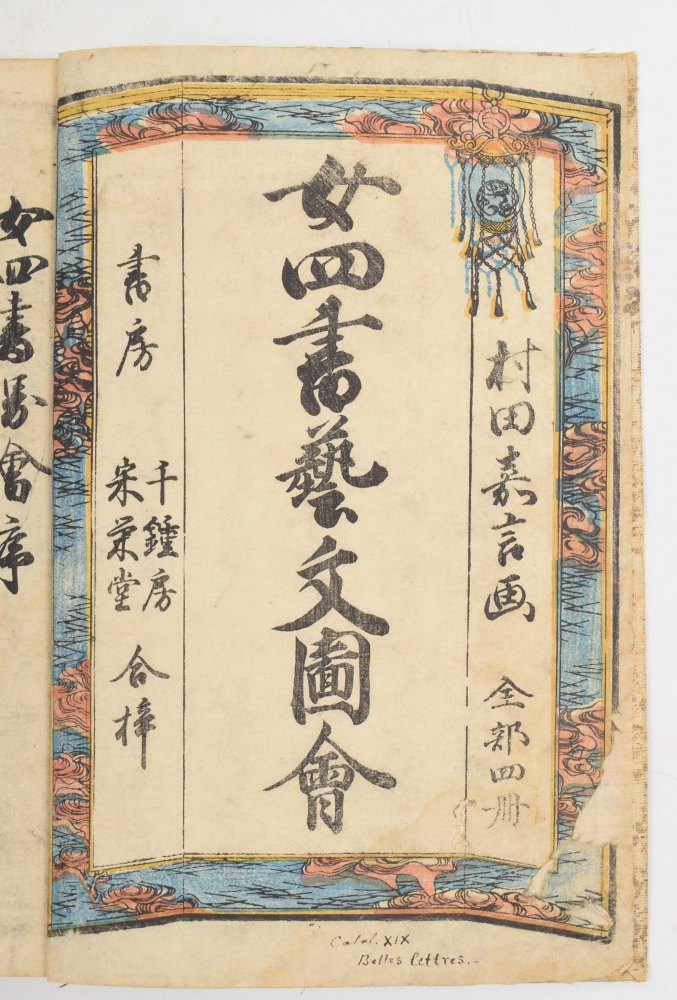 村田嘉言画 全部四冊
女四書藝文圖會
書房 千鍾房
宋栄堂 合梓
女四書圖會序
Catal. XIX
Belles lettres.